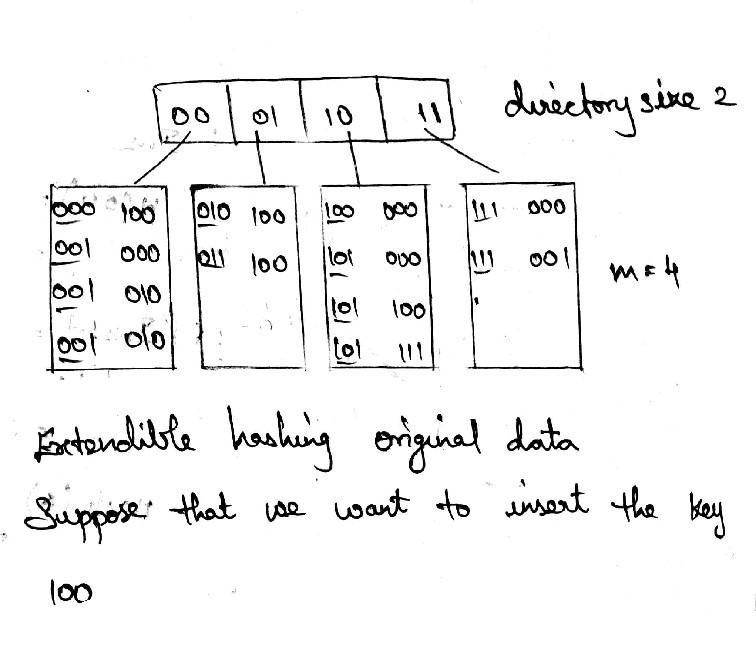 00 01 10 11 directory size 2
000 100 010 100 100 000 111 000
001 000 011 100 101 000 111 001
001 010 101 100 m = 4
001 010 101 111
Extendible hashing original data
Suppose that we want to insert the key
100